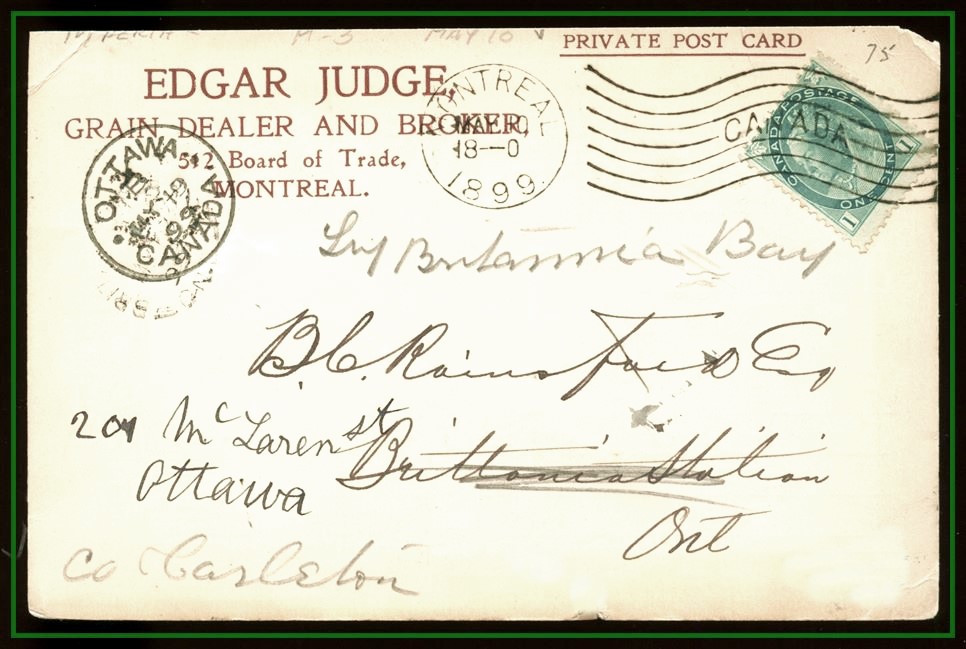 M-3 MAY 10
PRIVATE POST CARD
75
EDGAR JUDGE,
GRAIN DEALER AND BROKER,
512 Board of Trade,
MONTREAL.
MONTREAL
MAY 10
18-0
1899
CANADA
CANADA POSTAGE
ONE CENT
1
1
OTTAWA
CANADA
Britannia Bay
B. C. Rainsford Esq
201 McLaren st
Ottawa
Brittania Station
Ont
Co Carleton